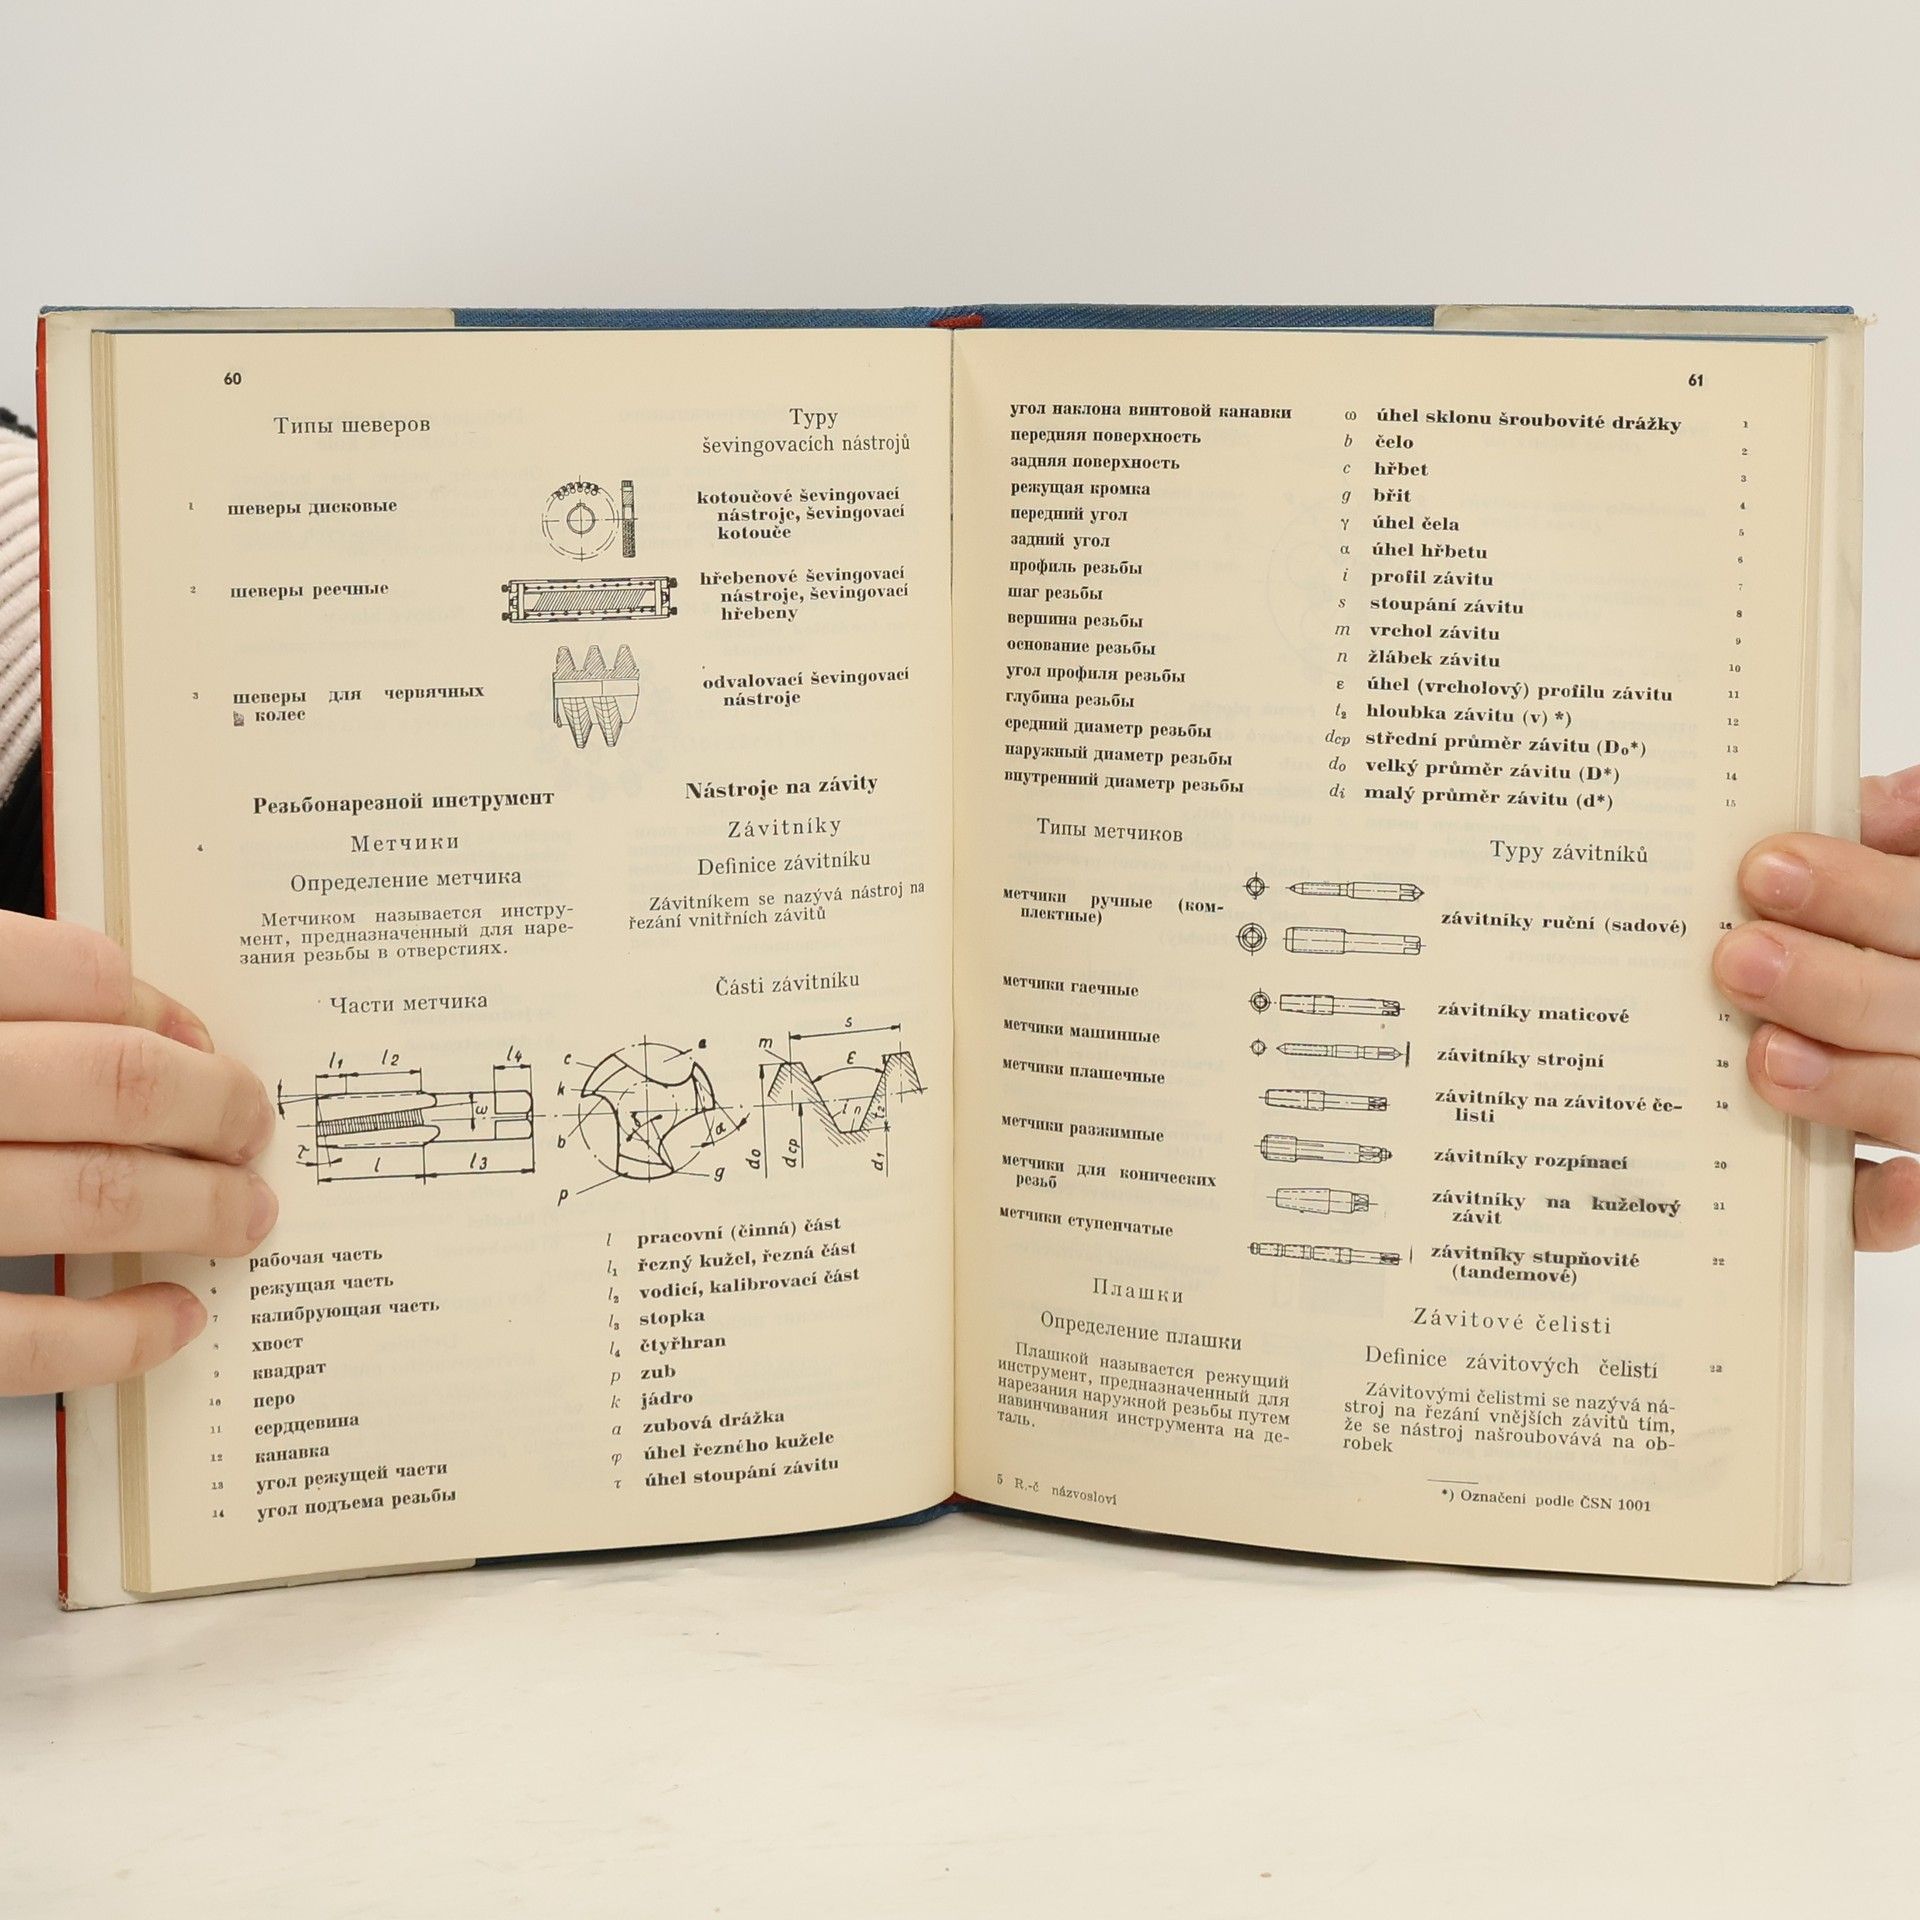 60
Типы шеверов
Typy
ševingovacích nástrojů
1 шеверы дисковые
kotoučové ševingovací
nástroje, ševingovací
kotouče
2 шеверы реечные
hřebenové ševingovací
nástroje, ševingovací
hřebeny
3 шеверы для червячных
колес
odvalovací ševingovací
nástroje
Резьбонарезной инструмент
Nástroje na závity
4 Метчики
Závitníky
Определение метчика
Definice závitníku
Метчиком называется инстру-
мент, предназначенный для наре-
зания резьбы в отверстиях.
Závitníkem se nazývá nástroj na
řezání vnitřních závitů
Части метчика
Části závitníku
l1 l2 l4 ω τ l l3
c a k b p g a
m s ε i n t2 do dcp d1
5 рабочая часть l pracovní (činná) část
6 режущая часть l₁ řezný kužel, řezná část
7 калибрующая часть l₂ vodicí, kalibrovací část
8 хвост l₃ stopka
9 квадрат l₄ čtyřhran
10 перо p zub
11 сердцевина k jádro
12 канавка a zubová drážka
13 угол режущей части φ úhel řezného kužele
14 угол подъема резьбы τ úhel stoupání závitu
61
угол наклона винтовой канавки ω úhel sklonu šroubovité drážky 1
передняя поверхность b čelo 2
задняя поверхность c hřbet 3
режущая кромка g břit 4
передний угол γ úhel čela 5
задний угол α úhel hřbetu 6
профиль резьбы i profil závitu 7
шаг резьбы s stoupání závitu 8
вершина резьбы m vrchol závitu 9
основание резьбы n žlábek závitu 10
угол профиля резьбы ε úhel (vrcholový) profilu závitu 11
глубина резьбы t₂ hloubka závitu (v) *) 12
средний диаметр резьбы dcp střední průměr závitu (D₀*) 13
наружный диаметр резьбы do velký průměr závitu (D*) 14
внутренний диаметр резьбы di malý průměr závitu (d*) 15
Типы метчиков
Typy závitníků
метчики ручные (ком-
плектные)
závitníky ruční (sadové) 16
метчики гаечные závitníky maticové 17
метчики машинные závitníky strojní 18
метчики плашечные závitníky na závitové če- 19
listi
метчики разжимные závitníky rozpínací 20
метчики для конических
резьб
závitníky na kuželový 21
závit
метчики ступенчатые závitníky stupňovité 22
(tandemové)
Плашки
Závitové čelisti
Определение плашки
Definice závitových čelistí 23
Плашкой называется режущий
инструмент, предназначенный для
нарезания наружной резьбы путем
навинчивания инструмента на де-
таль.
Závitovými čelistmi se nazývá ná-
stroj na řezání vnějších závitů tím,
že se nástroj našroubovává na ob-
robek
5 R.-č názvosloví
*) Označení podle ČSN 1001